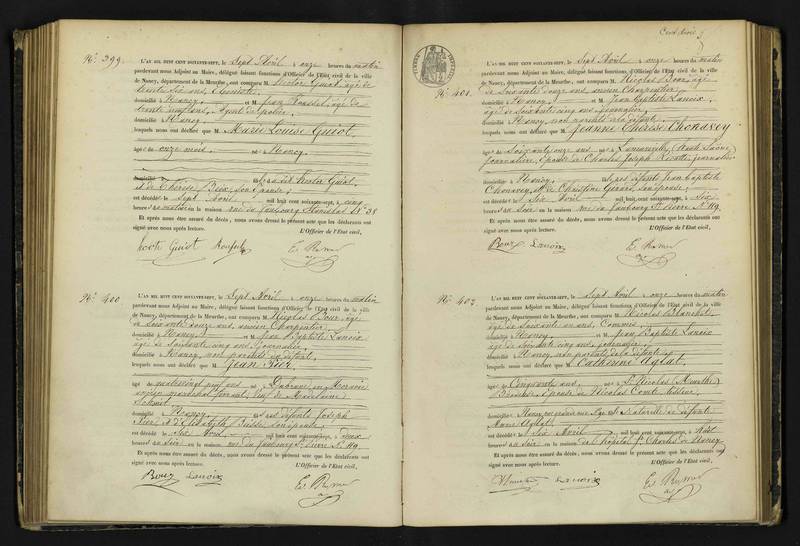 N° 399.
L'AN MIL HUIT CENT SOIXANTE-SEPT, le Sept Avril à onze heures du matin
pardevant nous Adjoint au Maire, délégué faisant fonctions d'Officier de l'Etat civil de la ville
de Nancy, département de la Meurthe, ont comparu M. Guiot, âgé de
trente six ans,
domicilié à Nancy, et M. Jean âgé de
trente ans, agent de police,
domicilié à Nancy,
lesquels nous ont déclaré que M. Marie Louise Guiot,
âgée de onze mois, née à Nancy,
Guiot,
et de Thérèse son épouse,
est décédée le Sept Avril mil huit cent soixante-sept, à cinq
heures du matin en la maison rue du faubourg Stanislas N° 38
Et après nous être assuré du décès, nous avons dressé le présent acte que les déclarants ont
signé avec nous après lecture.
L'Officier de l'Etat civil,
Guiot
N° 400
L'AN MIL HUIT CENT SOIXANTE-SEPT, le Sept Avril à onze heures du matin
pardevant nous Adjoint au Maire, délégué faisant fonctions d'Officier de l'Etat civil de la ville
de Nancy, département de la Meurthe, ont comparu M. Nicolas Bour, âgé
de soixante onze ans, ancien Charpentier,
domicilié à Nancy, et M. Jean Baptiste Lanoix
âgé de soixante cinq ans, journalier,
domicilié à Nancy, non parents du défunt,
lesquels nous ont déclaré que M. Jean
âgé de quatre vingt neuf ans né à
ancien maréchal ferrant, veuf de Madeleine
domicilié à Nancy, fils des défunts Joseph
et d'Elisabeth son épouse,
est décédé le Six Avril mil huit cent soixante-sept, à deux
heures du soir en la maison rue du faubourg St Pierre N° 119
Et après nous être assuré du décès, nous avons dressé le présent acte que les déclarants ont
signé avec nous après lecture.
L'Officier de l'Etat civil,
Bour Lanoix
N° 401.
L'AN MIL HUIT CENT SOIXANTE-SEPT, le Sept Avril à onze heures du matin
pardevant nous Adjoint au Maire, délégué faisant fonctions d'Officier de l'Etat civil de la ville
de Nancy, département de la Meurthe, ont comparu M. Nicolas Bour, âgé
de soixante onze ans, ancien Charpentier,
domicilié à Nancy, et M. Jean Baptiste Lanoix,
âgé de soixante cinq ans, journalier,
domicilié à Nancy, non parents de la défunte,
lesquels nous ont déclaré que M. Jeanne Thérèse Chonavey
âgée de soixante onze ans née à (Haute Saône)
journalière, épouse de Charles Joseph journalier
domiciliée à Nancy, fille des défunts Jean Baptiste
Chonavey, et de Christine son épouse,
est décédée le Six Avril mil huit cent soixante-sept, à six
heures du soir en la maison rue du faubourg St Pierre N° 119.
Et après nous être assuré du décès, nous avons dressé le présent acte que les déclarants ont
signé avec nous après lecture.
L'Officier de l'Etat civil,
Bour Lanoix
N° 402
L'AN MIL HUIT CENT SOIXANTE-SEPT, le Sept Avril à onze heures du matin
pardevant nous Adjoint au Maire, délégué faisant fonctions d'Officier de l'Etat civil de la ville
de Nancy, département de la Meurthe, ont comparu M. Nicolas
âgé de soixante un ans, Commis,
domicilié à Nancy, et M. Jean Baptiste Lanoix
âgé de soixante cinq ans, journalier,
domicilié à Nancy, non parents de la défunte,
lesquels nous ont déclaré que M. Catherine Aglat,
âgée de Cinquante ans, née à St Nicolas (Meurthe)
épouse de Nicolas
domiciliée à Nancy, fille naturelle de défunte
Anne Aglat,
est décédée le Six Avril mil huit cent soixante-sept, à huit
heures du soir en la maison de l'hôpital St Charles de Nancy
Et après nous être assuré du décès, nous avons dressé le présent acte que les déclarants ont
signé avec nous après lecture.
L'Officier de l'Etat civil,
Lanoix